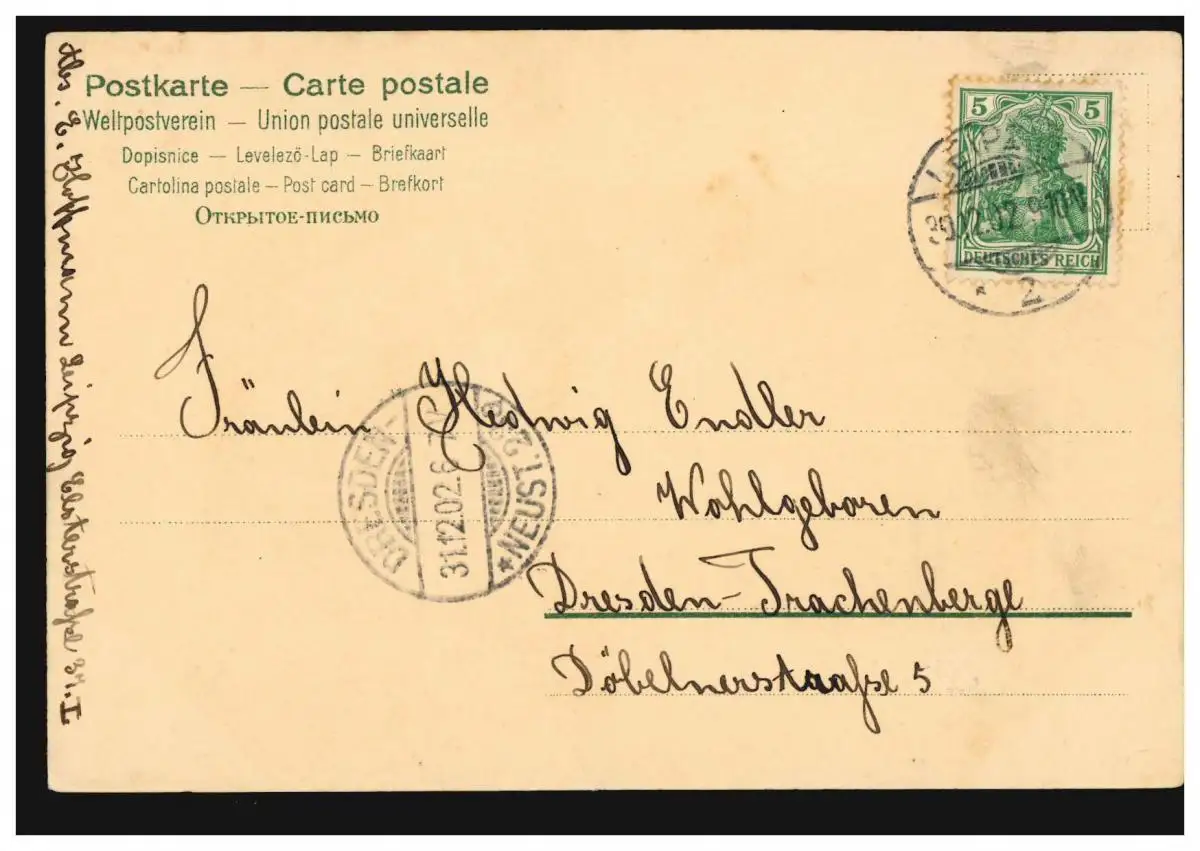 Postkarte — Carte postale
Weltpostverein — Union postale universelle
Dopisnice — Levelező-Lap — Briefkaart
Cartolina postale — Post card — Brefkort
Открытое-письмо
Abs. E. Hoffmann Leipzig Elsterstraße 37. I
5 5
DEUTSCHES REICH
LEIPZIG
30.12.02
* 2
Fräulein Hedwig Endler
Wohlgeboren
Dresden-Trachenberge
Döbelnerstraaße 5
DRESDEN-
31.12.02.6-7
*NEUST.